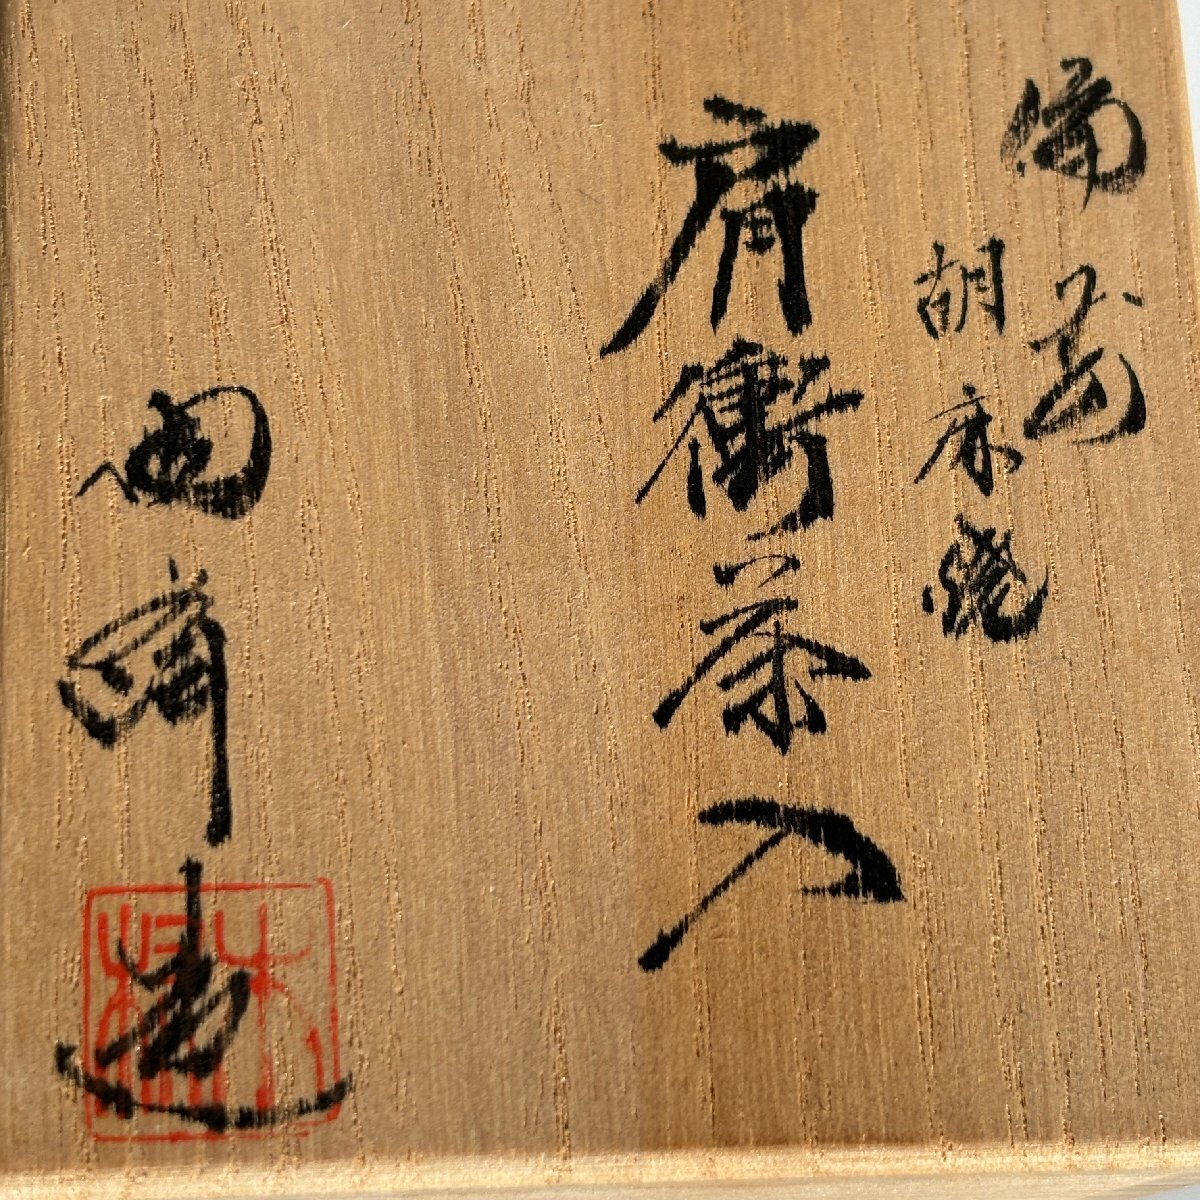 備前
胡麻焼
肩衝茶入
造